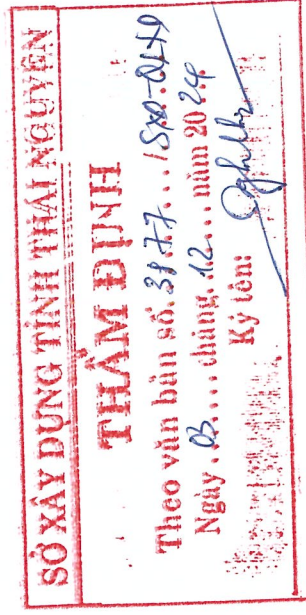 SỞ XÂY DỰNG TỈNH THÁI NGUYÊN
THẨM ĐỊNH
Theo văn bản số. 3177.../SXD-QLHĐ
Ngày .03.... tháng. 12... năm 2024
Ký tên: